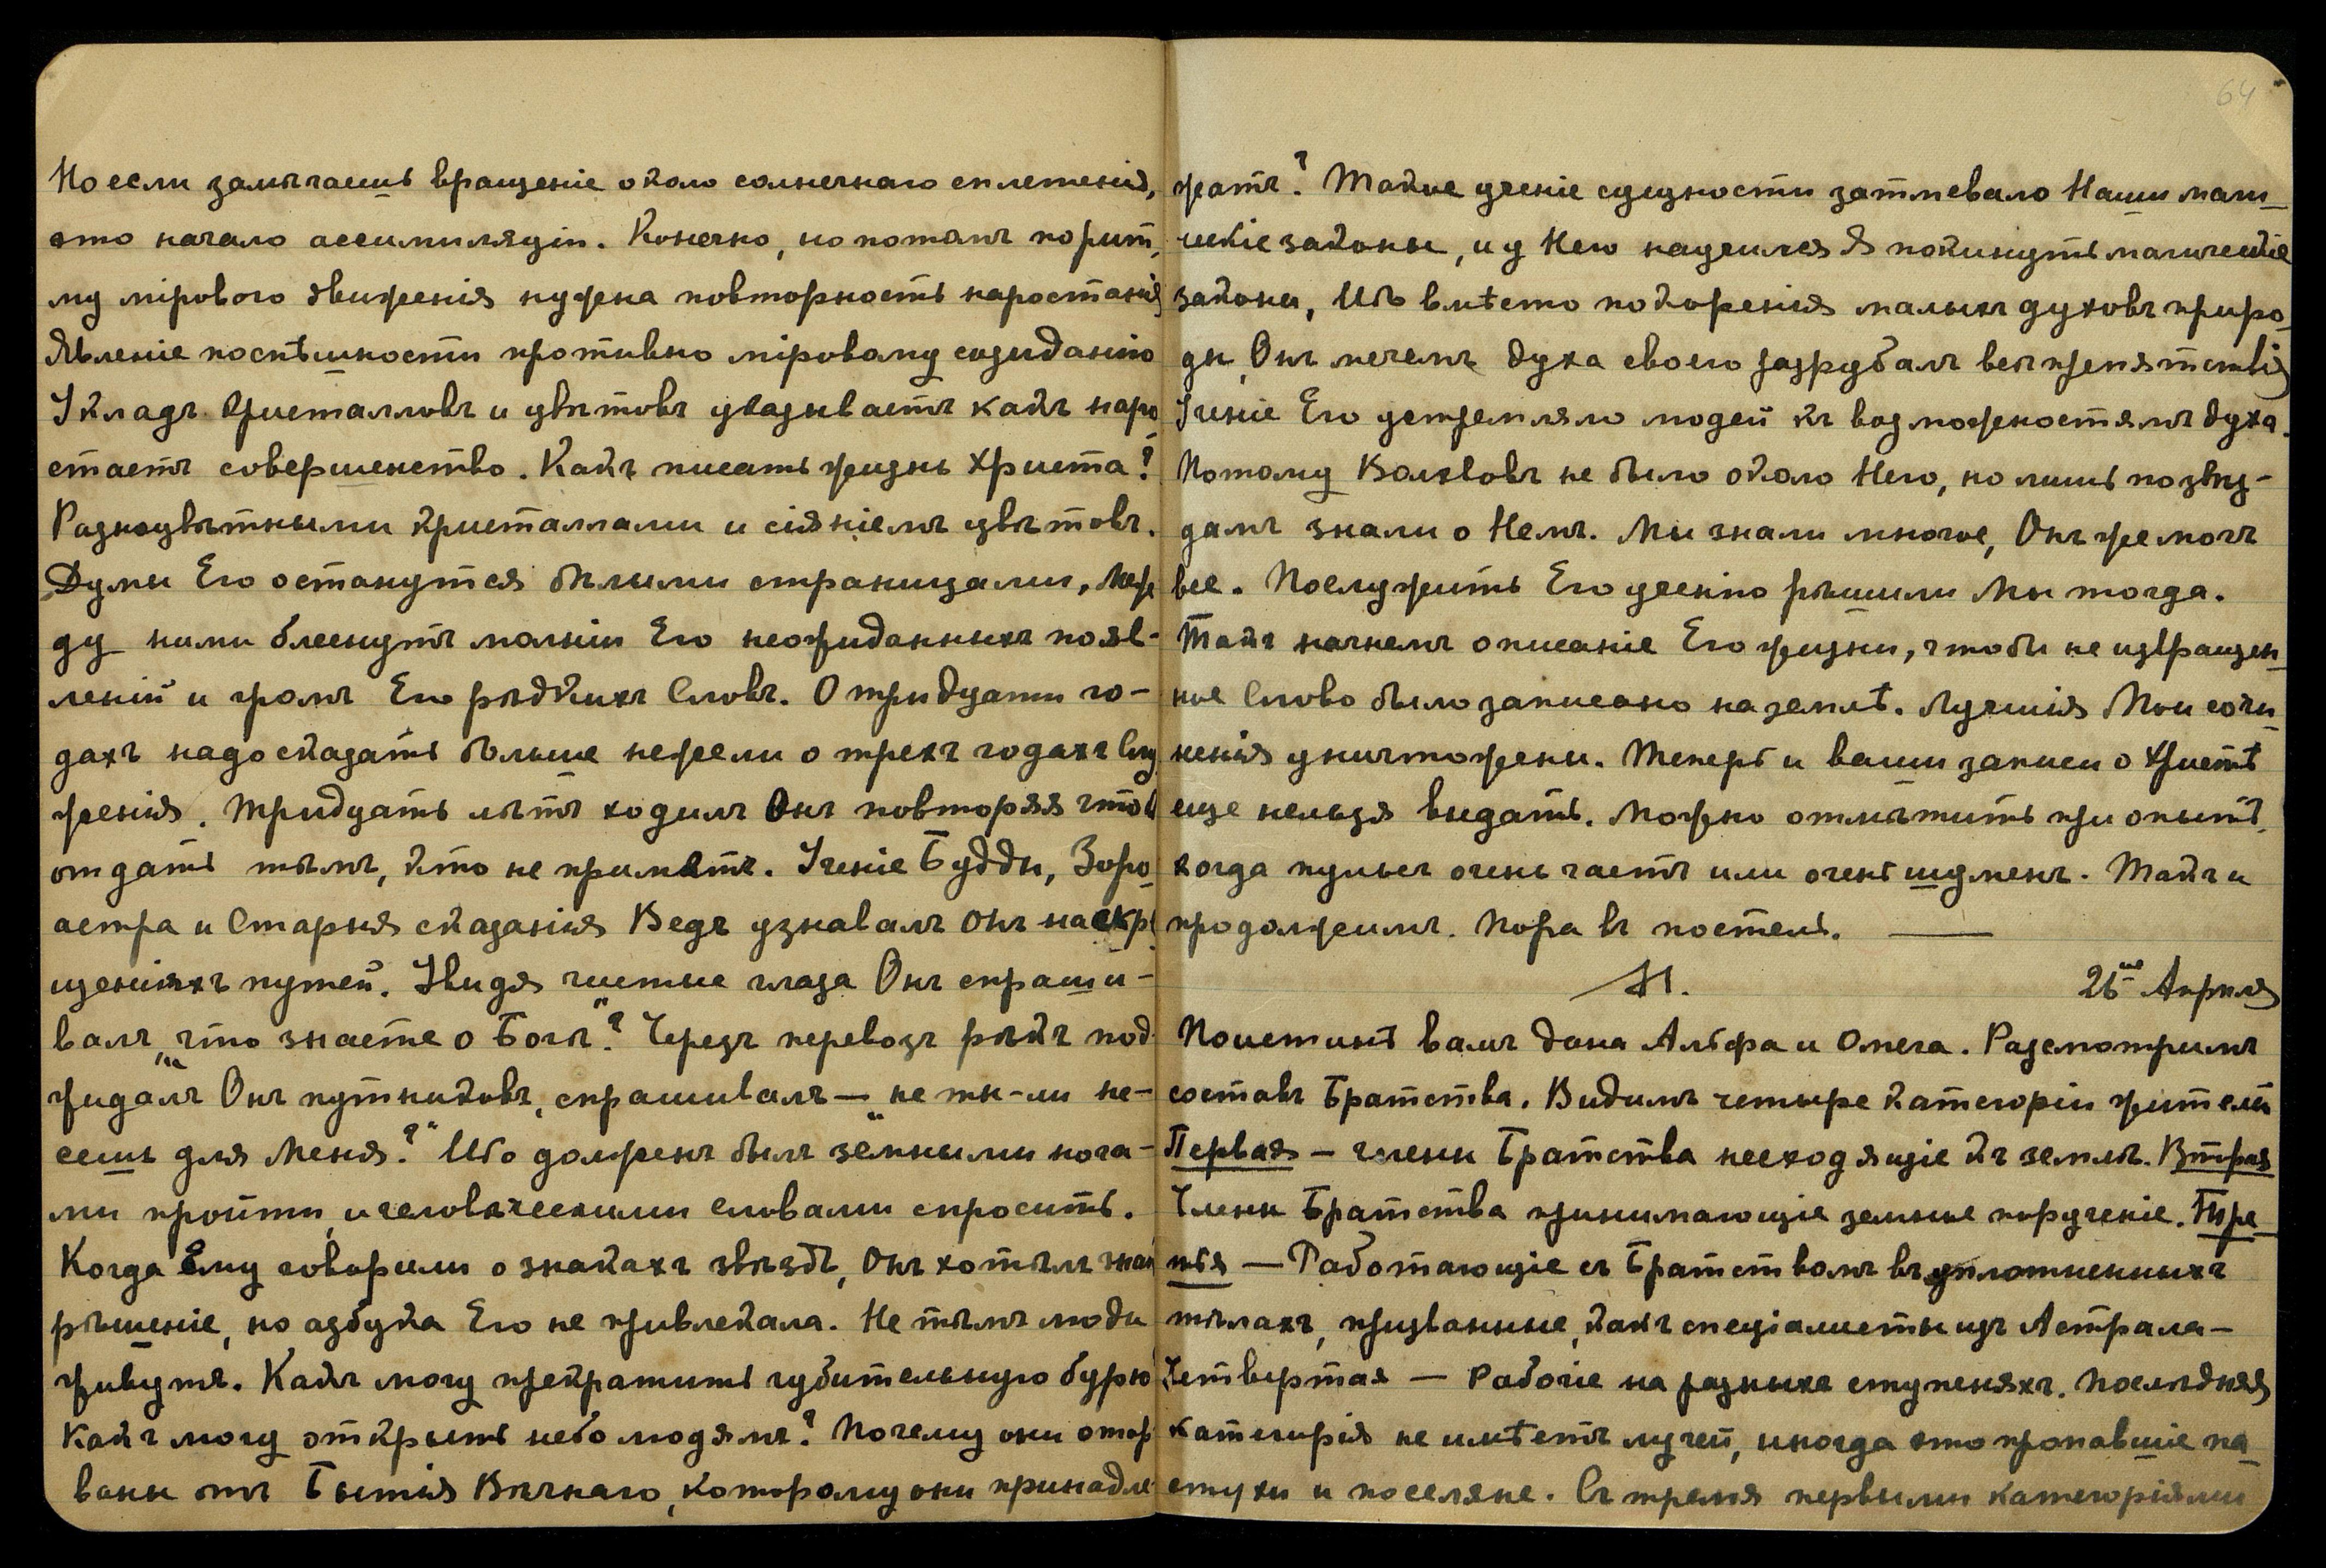 Но если замѣчаешь вращеніе около солнечнаго сплетенія,
это начало ассимиляціи. Конечно, но потомъ по рит,
му мірового движенія нужна повторность наростанія
Явленіе поспѣшности противно міровому созиданію
Укладъ кристалловъ и цвѣтовъ указываетъ какъ наро
стаетъ совершенство. Какъ писать жизнь Христа?
Разноцвѣтными кристаллами и сіяніемъ цвѣтовъ.
Думы Его останутся бѣлыми страницами, меж
ду ними блеснутъ молніи Его неожиданныхъ появ-
леній и громъ Его рѣдкихъ Словъ. О тридцати го-
дахъ надо сказать больше нежели о трехъ годахъ Слу
женія. Тридцать лѣтъ ходилъ Онъ повторяя чтоб
отдать тѣмъ, кто не приметъ. Ученіе Будды, Зоро
астра и Старыя сказанія Ведъ узнавалъ Онъ на скре
щеніяхъ путей. Увидя чистые глаза Онъ спраши-
валъ „что знаете о Богѣ"? Черезъ перевозъ рѣкъ под
жидалъ Онъ путниковъ, спрашивалъ — „не ты-ли не-
сешь для Меня?" Ибо долженъ былъ земными нога-
ми пройти, и человѣческими словами спросить.
Когда Ему говорили о знакахъ звѣздъ, Онъ хотѣлъ знать
рѣшеніе, но азбука Его не привлекала. Не тѣмъ люди
живутъ. Какъ могу прекратить губительную бурю
Какъ могу открыть небо людямъ? Почему они отор
ваны отъ Бытія Вѣчнаго, которому они принадле
64
жатъ? Такое ученіе сущности затмевало Наши маги_
ческіе законы, и у Него научился Я покинуть магическіе
законы, Ибо вмѣсто покоренія малыхъ духовъ приро_
ды, Онъ мечемъ духа своего разрубалъ всѣ препятствія
Ученіе Его устремляло людей къ возможностямъ духа.
Потому Волхвовъ не было около Него, но лишь по звѣз-
дамъ знали о Немъ. Мы знали многое, Онъ же могъ
все. Послужить Его ученію рѣшили Мы тогда.
Такъ начнемъ описаніе Его жизни, чтобы не извращен_
ное Слово было записано на землѣ. Лучшія Мои сочи_
ненія уничтожены. Теперь и ваши записи о Христѣ
еще нельзя выдать. Можно отмѣтить при опытѣ,
когда пульсъ очень частъ или очень шуменъ. Такъ и
продолжимъ. Пора въ постель. ——
М. 26го Апрѣля
Поистинѣ вамъ дана Альфа и Омега. Разсмотримъ
составъ Братства. Видимъ четыре категоріи жителей
Первая — члены Братства несходящіе къ землѣ. Вторая
Члены Братства принимающіе земные порученіе. Тре_
тья — Работающіе съ Братствомъ въ уплотненныхъ
тѣлахъ, призванные, какъ спеціалисты изъ Астрала —
Четвертая — Рабочіе на разныхъ ступеняхъ. Послѣдняя
категорія не имѣетъ лучей, иногда это пропавшіе па_
стухи и поселяне. Съ тремя первыми категоріями